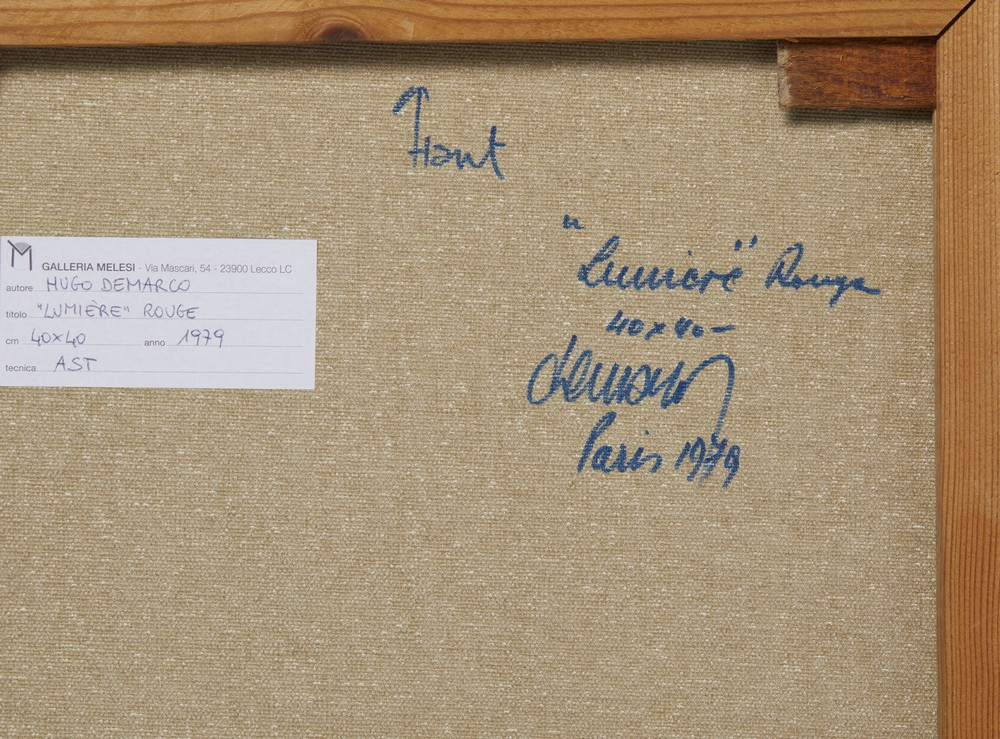 ↑ Haut
"
Lumière" Rouge
40x40-
demarco
Paris 1979
M
GALLERIA MELESI - Via Mascari, 54 - 23900 Lecco LC
autore HUGO DEMARCO
titolo "LUMIÈRE" ROUGE
cm 40x40 anno 1979
tecnica AST